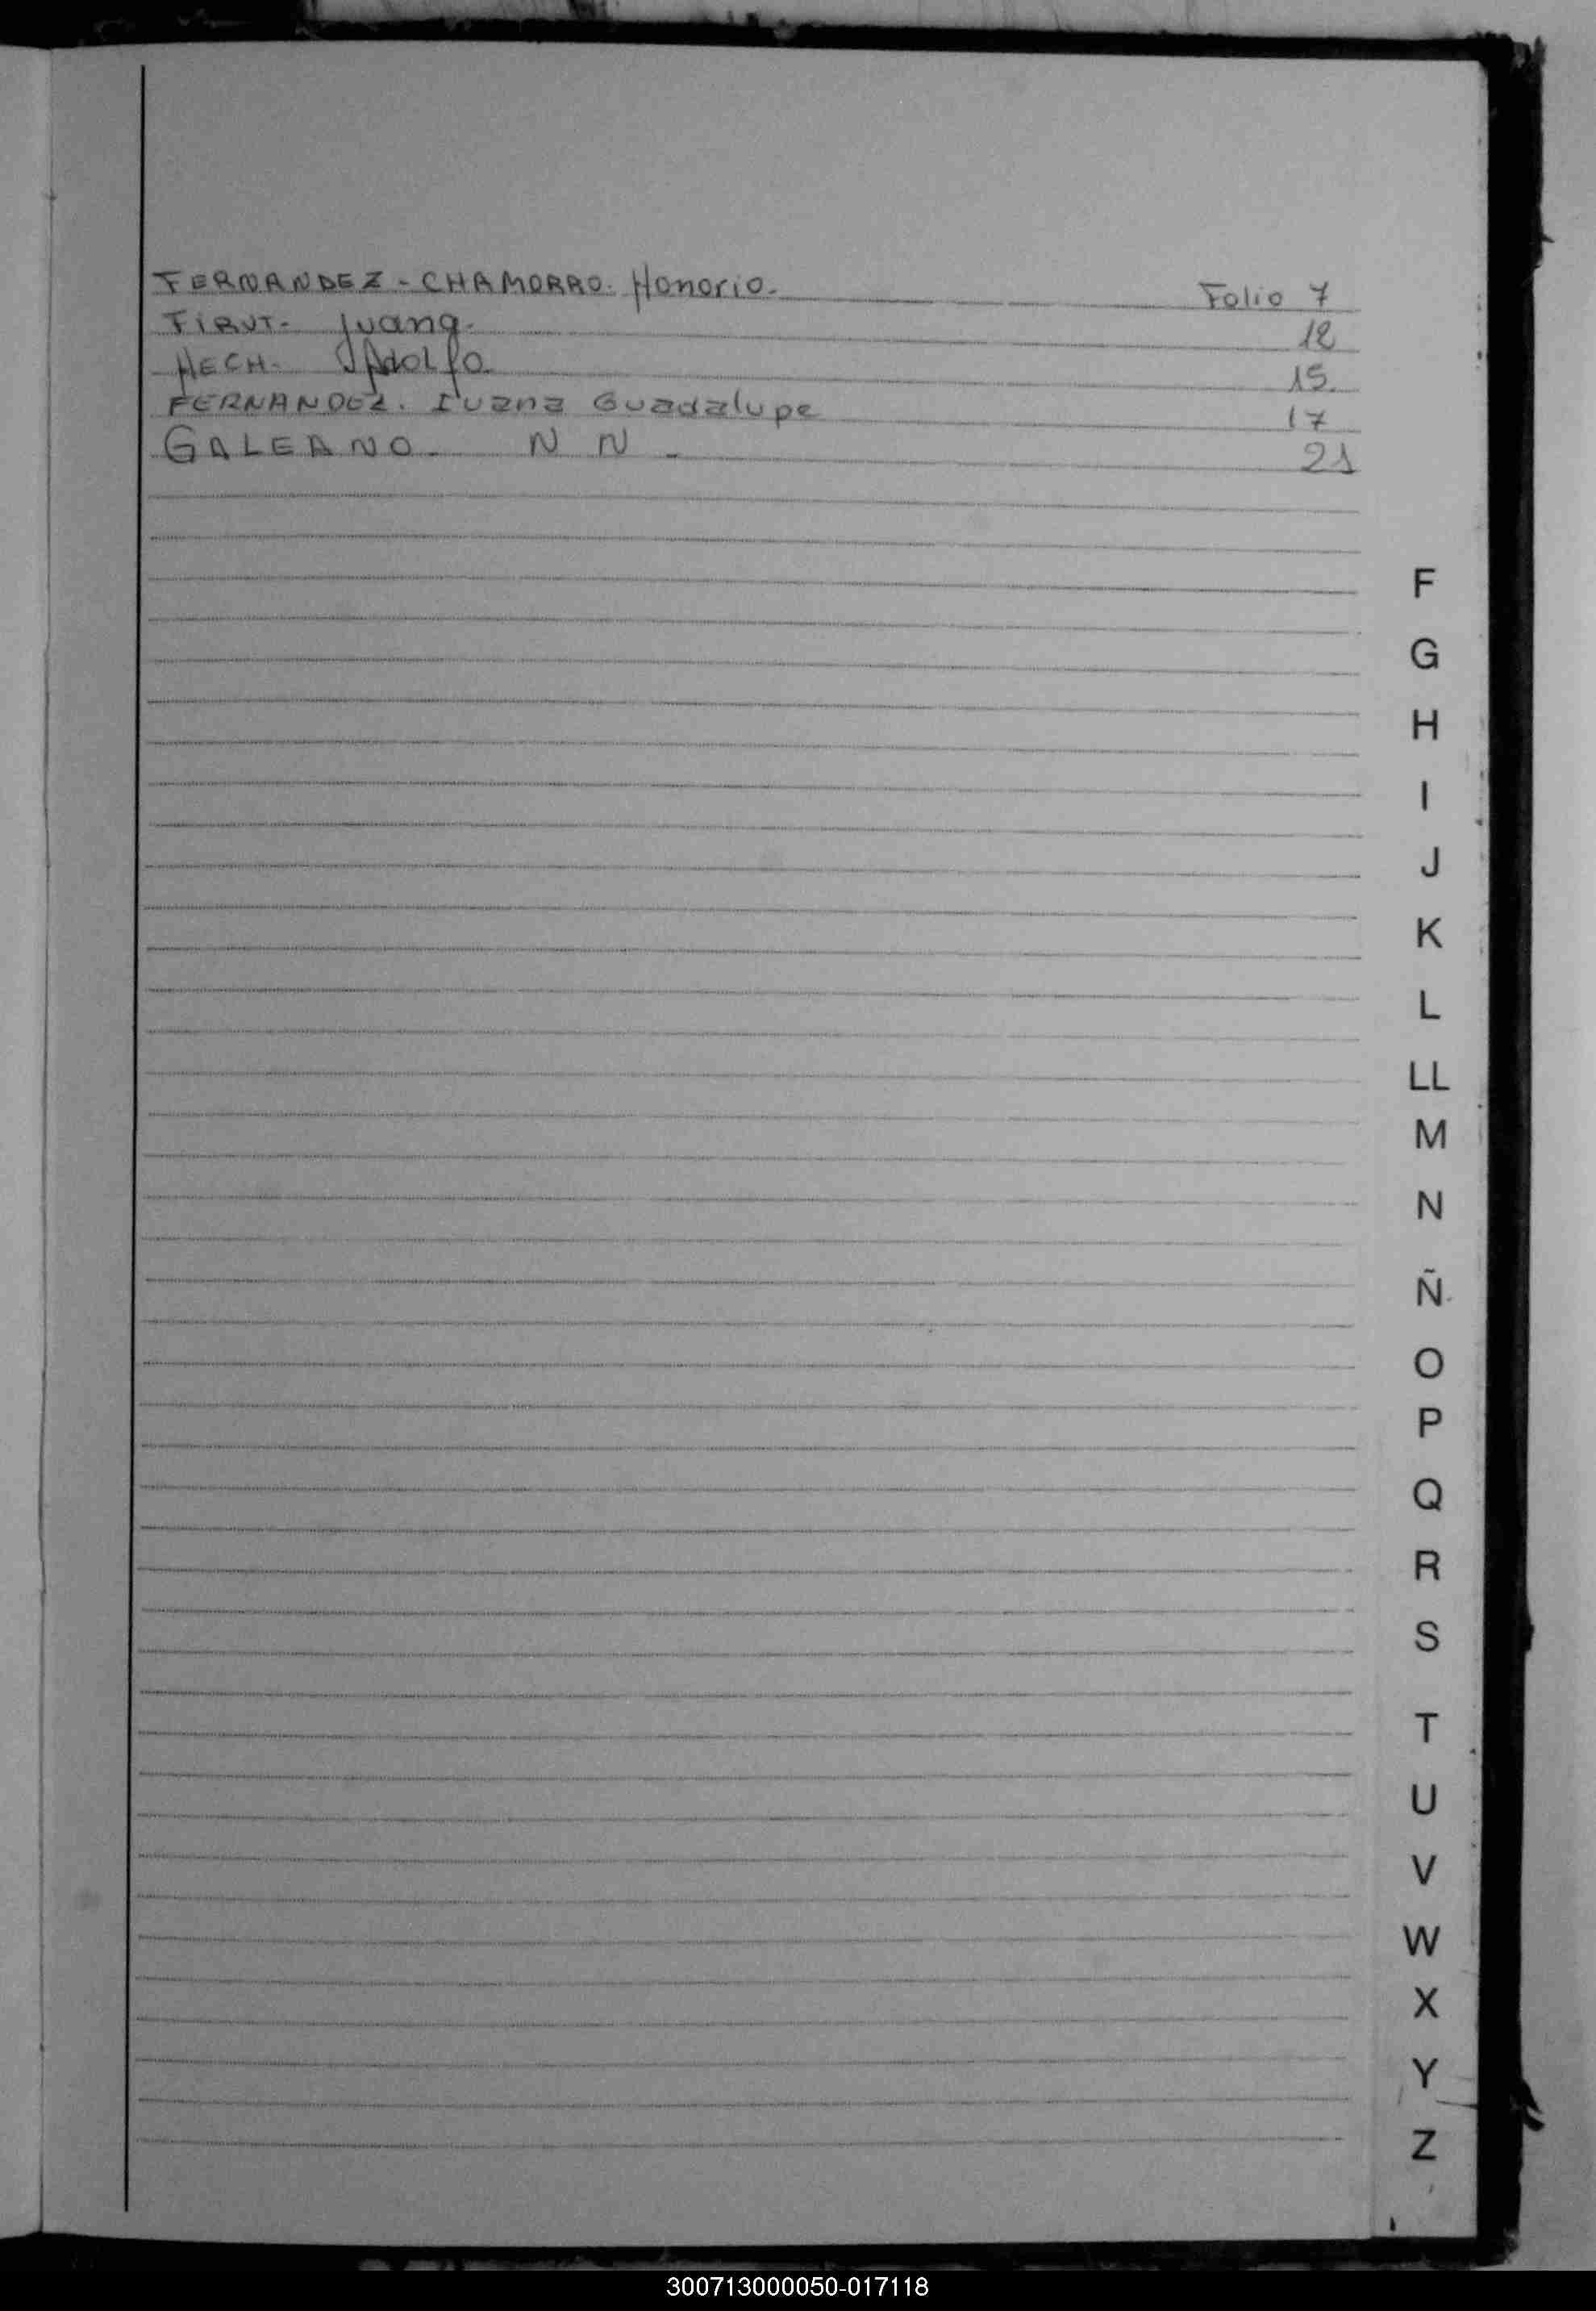 FERNANDEZ - CHAMORRO. Honorio. Folio 7
FIRUT. Juana. 12
HECH. Adolfo. 15
FERNANDEZ. Iuana Guadalupe 17
GALEANO. N N. 21
F
G
H
I
J
K
L
LL
M
N
Ñ
O
P
Q
R
S
T
U
V
W
X
Y
Z
300713000050-017118